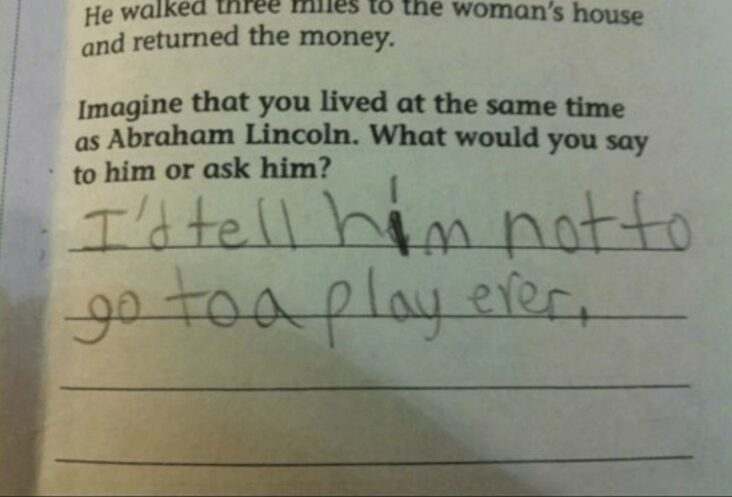 He walked three miles to the woman's house
and returned the money.
Imagine that you lived at the same time
as Abraham Lincoln. What would you say
to him or ask him?
I'd tell him not to
go to a play ever.